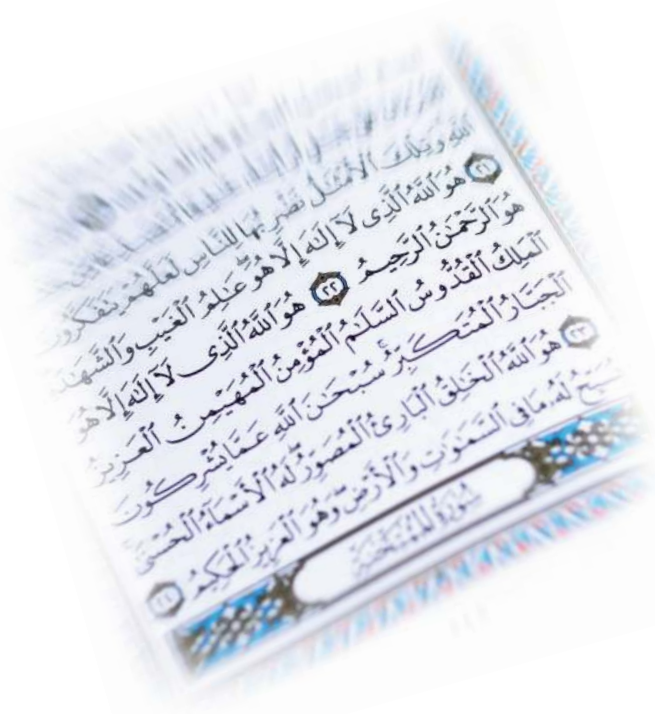 ٱللَّهِ وَتِلْكَ ٱلْأَمْثَٰلُ نَضْرِبُهَا لِلنَّاسِ لَعَلَّهُمْ يَتَفَكَّرُونَ
٢١ هُوَ ٱللَّهُ ٱلَّذِى لَآ إِلَٰهَ إِلَّا هُوَ عَٰلِمُ ٱلْغَيْبِ وَٱلشَّهَٰدَةِ
هُوَ ٱلرَّحْمَٰنُ ٱلرَّحِيمُ ٢٢ هُوَ ٱللَّهُ ٱلَّذِى لَآ إِلَٰهَ إِلَّا هُوَ
ٱلْمَلِكُ ٱلْقُدُّوسُ ٱلسَّلَٰمُ ٱلْمُؤْمِنُ ٱلْمُهَيْمِنُ ٱلْعَزِيزُ
ٱلْجَبَّارُ ٱلْمُتَكَبِّرُ ۚ سُبْحَٰنَ ٱللَّهِ عَمَّا يُشْرِكُونَ
٢٣ هُوَ ٱللَّهُ ٱلْخَٰلِقُ ٱلْبَارِئُ ٱلْمُصَوِّرُ ۖ لَهُ ٱلْأَسْمَآءُ ٱلْحُسْنَىٰ
يُسَبِّحُ لَهُۥ مَا فِى ٱلسَّمَٰوَٰتِ وَٱلْأَرْضِ ۖ وَهُوَ ٱلْعَزِيزُ ٱلْحَكِيمُ ٢٤
سُورَةُ ٱلْمُمْتَحنَةِ